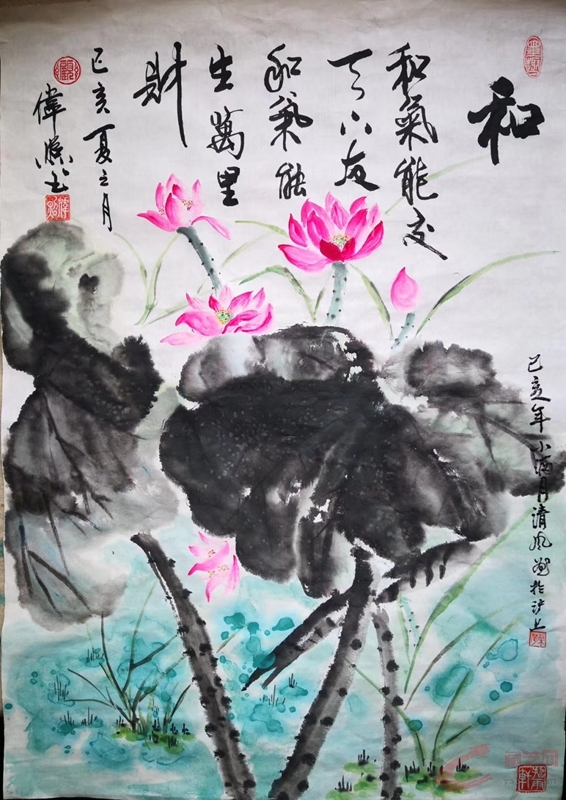 和
和氣能交
天下友
和氣能
生萬里
財
己亥夏之月
偉书
己亥年小海月清风於沪上